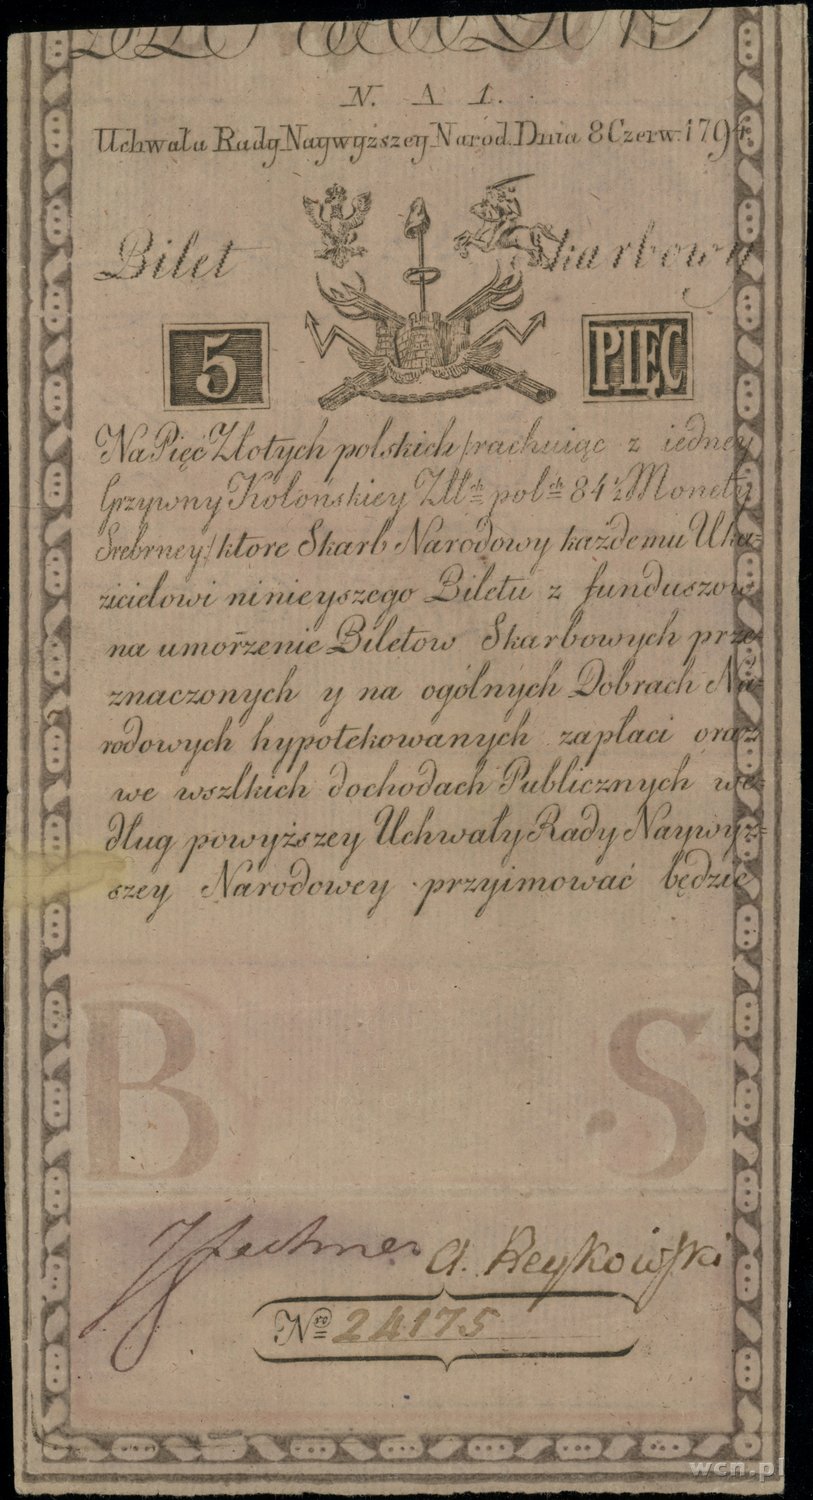 N. A 1.
Uchwała Rady Naywyższey Narod. Dnia 8 Czerw. 1794
Bilet Skarbowy
5 PIĘC
Na Pięć Złotych polskich /rachuiąc z iedney
Grzywny Kolońskiey Złł:ch pol:ch 84½ Monety
Srebrney/ ktore Skarb Narodowy każdemu Uka=
zicielowi ninieyszego Biletu z funduszow
na umorzenie Biletow Skarbowych prze=
znaczonych y na ogólnych Dobrach Na=
rodowych hypotekowanych zapłaci oraz
we wszlkich dochodach Publicznych we=
dług powyższey Uchwały Rady Naywyż=
szey Narodowey przyimować będzie
B S
A. Reykowski
Nro 24175
wcn.pl